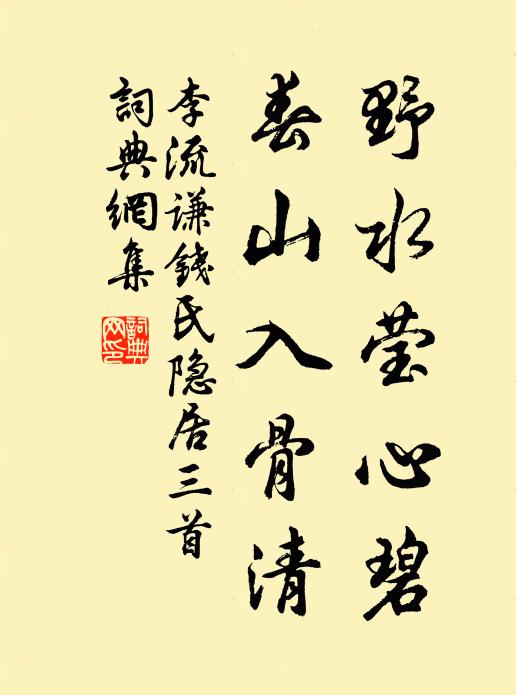 野水莹心碧
春山入骨清
李流谦錢氏隐居三首
詞典網集
詞典网印